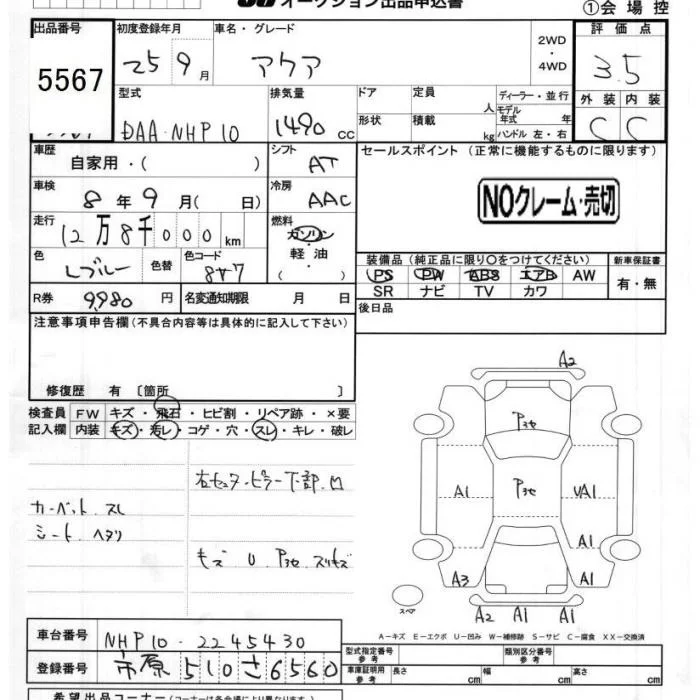 オークション出品申込書
①会場控
出品番号
5567
初度登録年月
25 9月
車名・グレード
アクア
2WD
・
4WD
評価点
3.5
型式
DAA-NHP10
排気量
1490 CC
ドア
定員
人
ディーラー・並行
モデル年式 年
形状
積載
kg
ハンドル 左・右
外装 内装
C C
車歴
自家用・( )
シフト
AT
セールスポイント(正常に機能するものに限ります)
NOクレーム・売切
車検
8年9月( 日)
冷房
AAC
走行
12万8千000km
燃料
ガソリン
・
軽油
( )
色
Lブルー
色替
色コード
8W7
装備品(純正品に限り〇をつけてください)
PS PW ABS エアB AW
SR ナビ TV カワ
新車保証書
有・無
R券
9,980円
名変通知期限 月 日
後日品
注意事項申告欄(不具合内容等は具体的に記入して下さい)
修復歴 有〔箇所 〕
検査員記入欄
FW キズ・飛石・ヒビ割・リペア跡・×要
内装 キズ・汚レ・コゲ・穴・スレ・キレ・破レ
右セュタ・ピラー下部 凹
カーペット スレ
シート ヘタリ
キズ U Pヨセ スリキズ
A2
Pヨセ
A1 Pヨセ UA1
A1
A3 A1
スペア
A2 A1 A1
A-キズ E-エクボ U-凹み W-補修跡 S-サビ C-腐食 XX-交換済
車台番号
NHP10-2245430
型式指定番号 参考
類別区分番号 参考
登録番号
市原 510 さ6560
車庫証明用 参考
長さ cm 幅 cm 高さ cm
希望出品コーナー(コーナーは各会場により異なります)